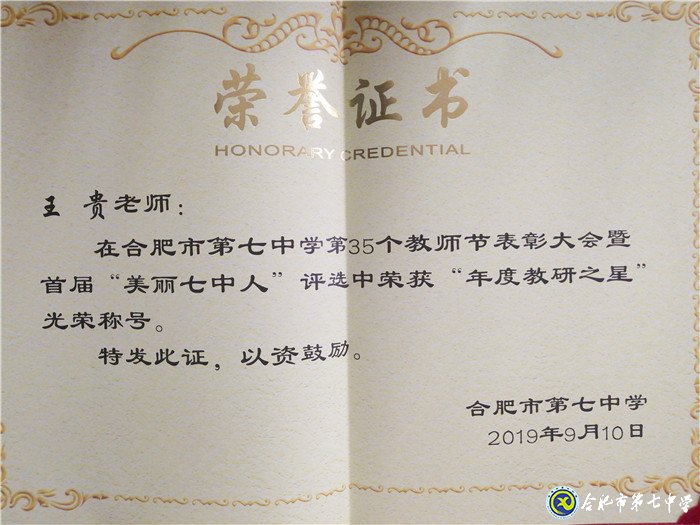 荣誉证书
HONORARY CREDENTIAL
王 贵老师：
在合肥市第七中学第35个教师节表彰大会暨
首届“美丽七中人”评选中荣获“年度教研之星”
光荣称号。
特发此证，以资鼓励。
合肥市第七中学
2019年9月10日
合肥市第七中学